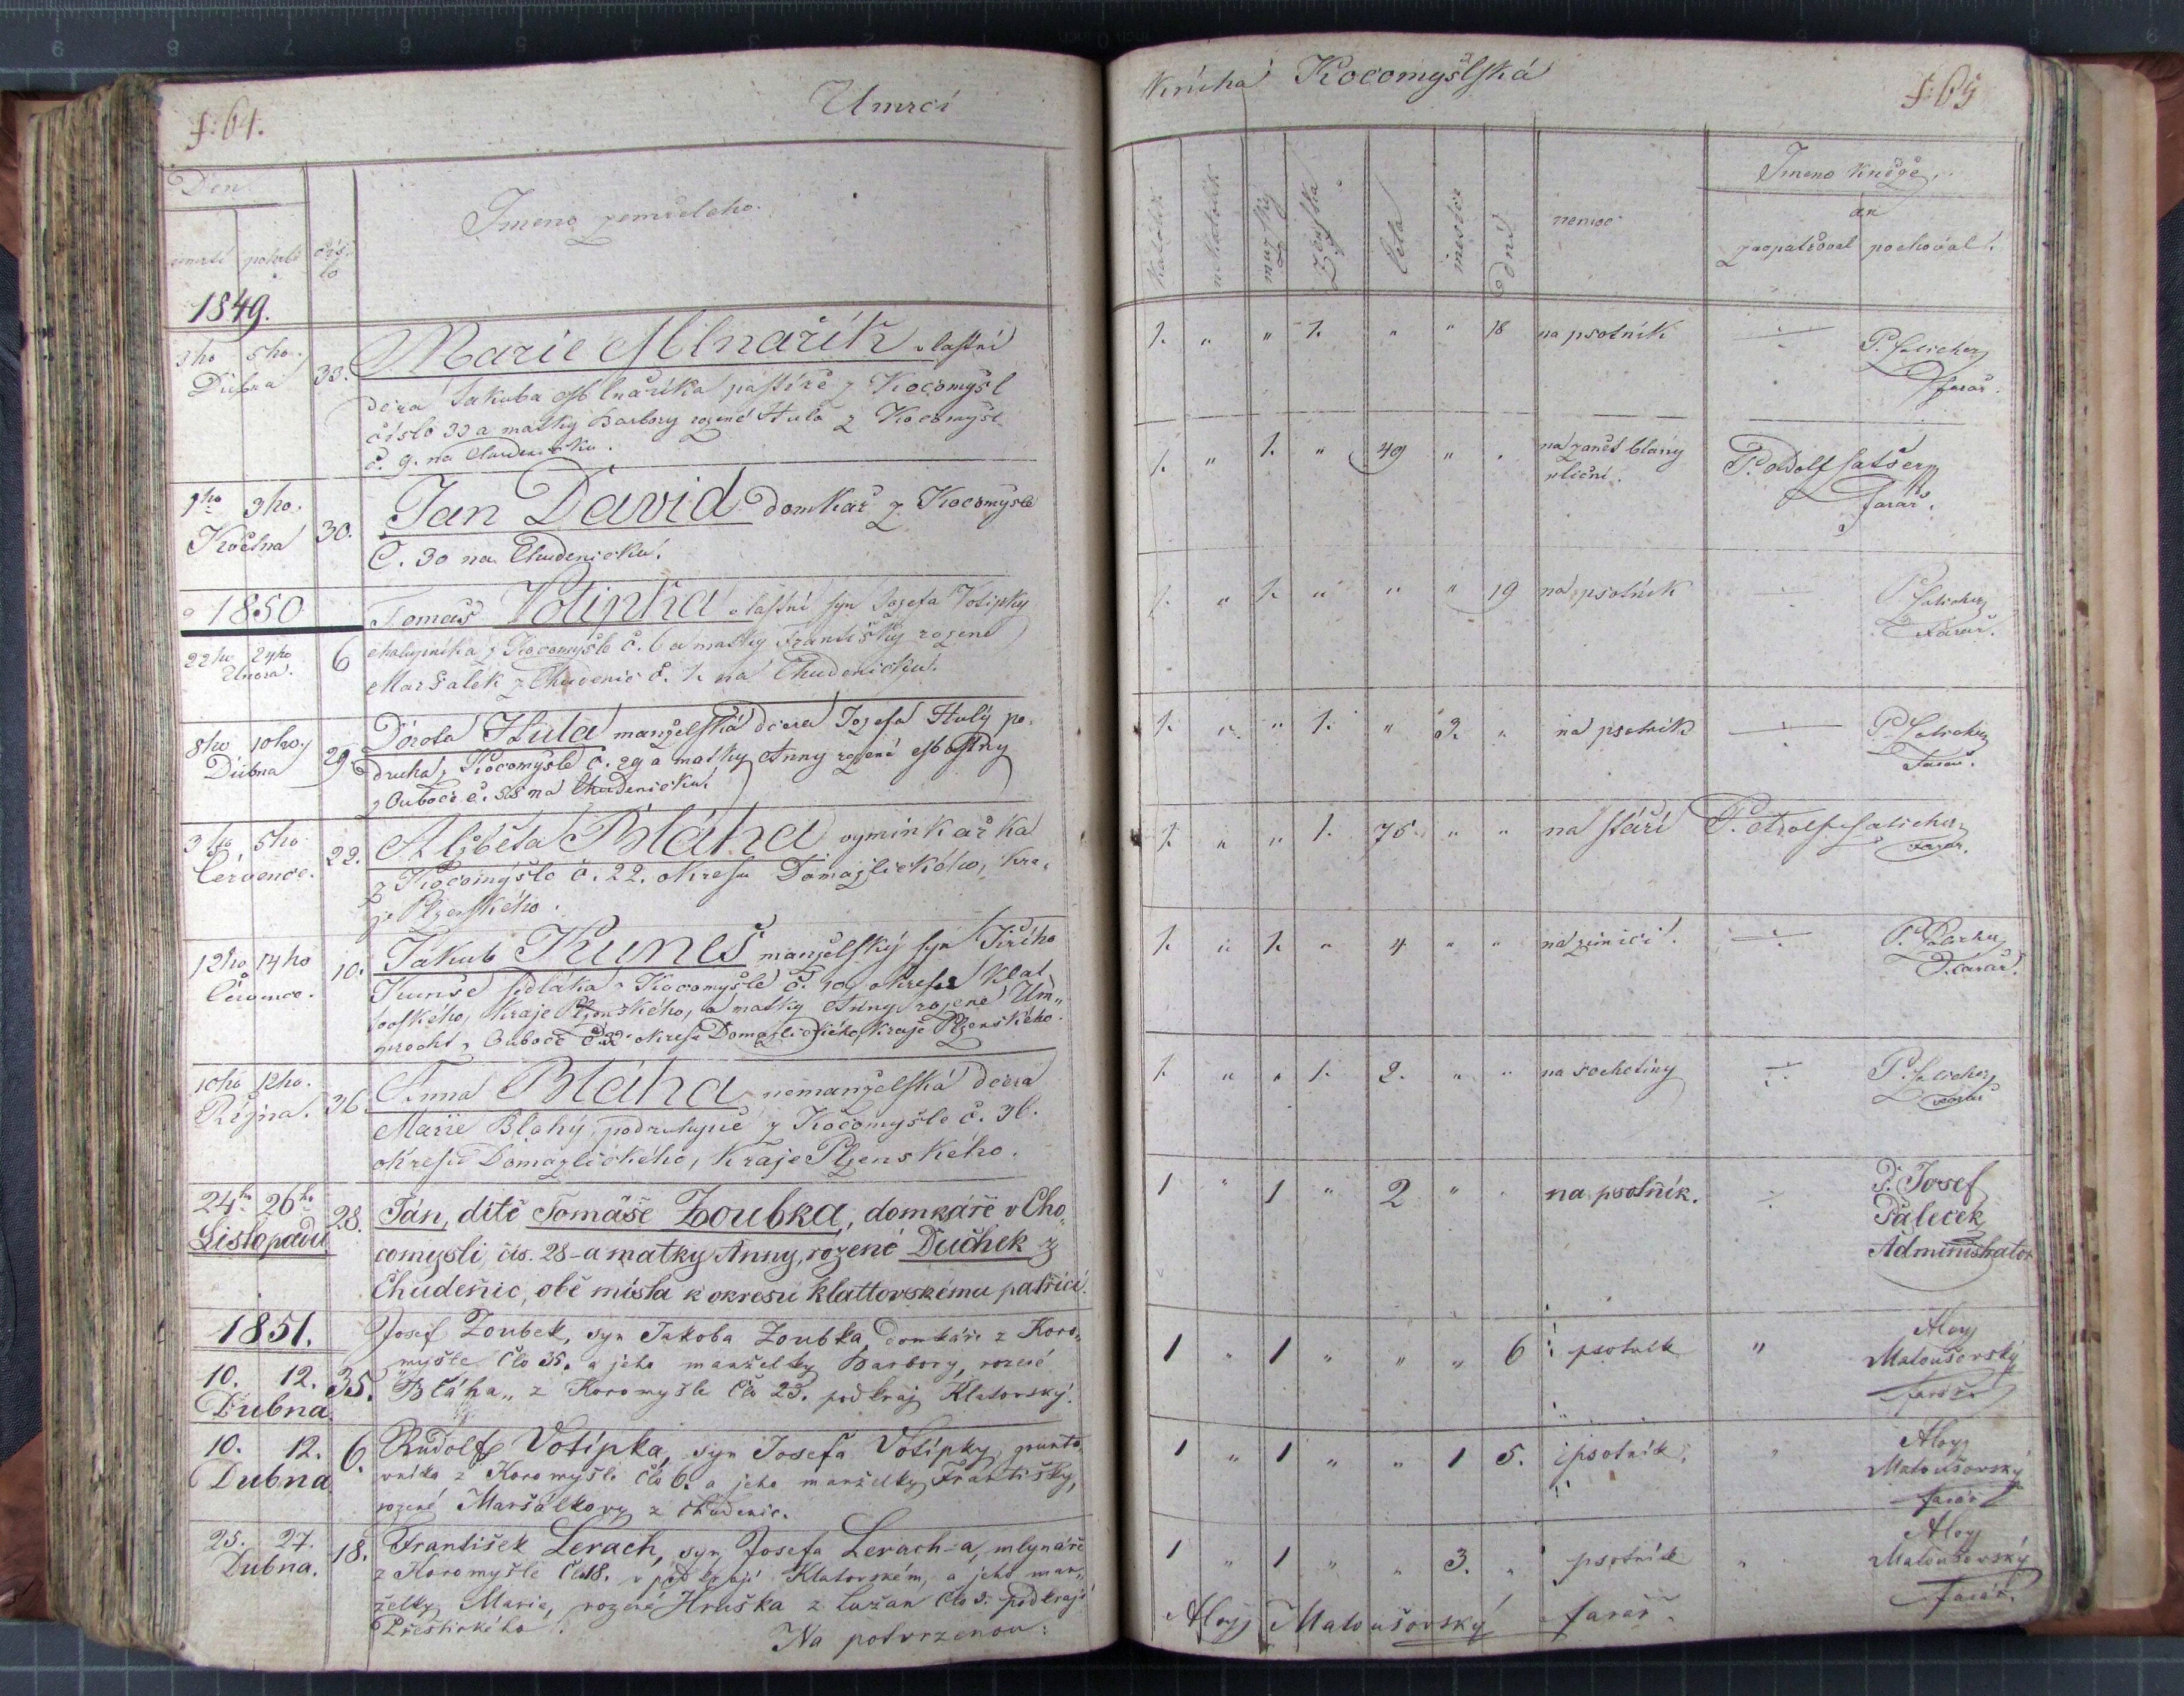 f: 64.
Umrcí
Den
umrtí pohrb
čís-
lo
Jmeno zemřeleho.
1849.
3ho 5ho
Dubna
33.
Marie Mlnařík vlastní
dcera Jakuba Mlnaříka pastíře z Kocomyšl
číslo 33 a matky Barbory rozené Hula z Kocomyšl
č. 9. na Chudenicku.
1ho 3ho.
Května
30.
Jan David domkař z Kocomyšle
Č. 30 na Chudenicku.
1850
22ho 24ho
Unora.
6
Tomáš Votipka vlastní syn Jozefa Votipky
chalupníka z Kocomyšle č. 6 a matky Františky rozené
Maršalek z Chudenic č. 1. na Chudenicku.
8ho 10ho
Dubna
29.
Dorota Hula manželská dcera Jozefa Huly po-
druha z Kocomyšle č. 29 a matky Anny rozené
z Ouboče č. na Chudenicku.
3ho 5ho
Července.
22.
Alžběta Bláha vyminkařka
z Kocomyšle č. 22. okresu Domažlického, kra-
je Plzenského.
12ho 14ho
Července.
10.
Jakub Kuneš manželský syn Jiřího
Kunše sedláka z Kocomyšle Č. 10 okresu Klat-
tovského, kraje Plzenského, a matky Anny rozené Um-
precht z Ouboče okresu Domažlického, kraje Plzenského.
10ho 12ho.
Řijna.
36.
Anna Bláha nemanželská dcera
Marie Blahy podruhyně z Kocomyšle č. 36.
okresu Domazlického, kraje Plzenského.
24ho 26ho
Listopadu
28.
Ján, dítě Tomáše Zoubka, domkáře v Cho-
comyšli, čís. 28 - a matky Anny, rozené Duchek z
Chudenic, obě místa k okresu klattovskému patřící.
1851.
10. 12.
Dubna
35.
Josef Zoubek, syn Jakoba Zoubka domkáře z Koco-
myšle Čło 35. a jeho manželky Barbory, rozené
"Bláha" z Kocomyšle Čło 23. podkraj Klatovský.
10. 12.
Dubna
6.
Rudolf Votípka, syn Josefa Votípky, grunto-
vníka z Kocomyšle Čło 6. a jeho manželky Františky,
rozené Maršálkovy z Chudenic.
25. 27.
Dubna.
18.
František Lerach, syn Josefa Lerach-a, mlynáře
z Kocomyšle Čło 18. v podkrají Klatovském, a jeho man-
želky Marie, rozené Hruška z Lužan Čło 3. podkrají
Přeštického.
Na potvrzenou:
Knicha Kocomyšlská
f: 65
katolik
nekatolik
mužský
ženská
leta
mesíce
dní
nemoc
Jmeno kněze,
an
zaopatřoval pochoval.
1. " " 1. " " 18 na psotník ÷ P. Salicher
farař.
1. " 1. " 49 " " na zanět blány
plicní.
P. Adolf Salicher
farář.
1. " 1. " " " 19 na psotník ÷ P. Salicher
Farař.
1. " " 1. " 3. " na psotník ÷ P. Salicher
Farař.
1. " " 1. 75 " " na stáří P. Adolf Salicher
farar.
1. " 1. " 4 " " na zimnici. ÷ P. Salicher
Farař.
1. " " 1. 2. " " na souchotiny ÷ P. Salicher
farář
1 " 1 " 2 " " na psotník. ÷ P. Josef
Páleček
Administrator
1 " 1 " " " 6 psotník " Aloys
Matoušovský
farář
1 " 1 " " 1 5. psotník " Aloys
Matoušovský
farář
1 " 1 " " 3. " psotník " Aloys
Matoušovský
farář.
Aloys Matoušovský farář.